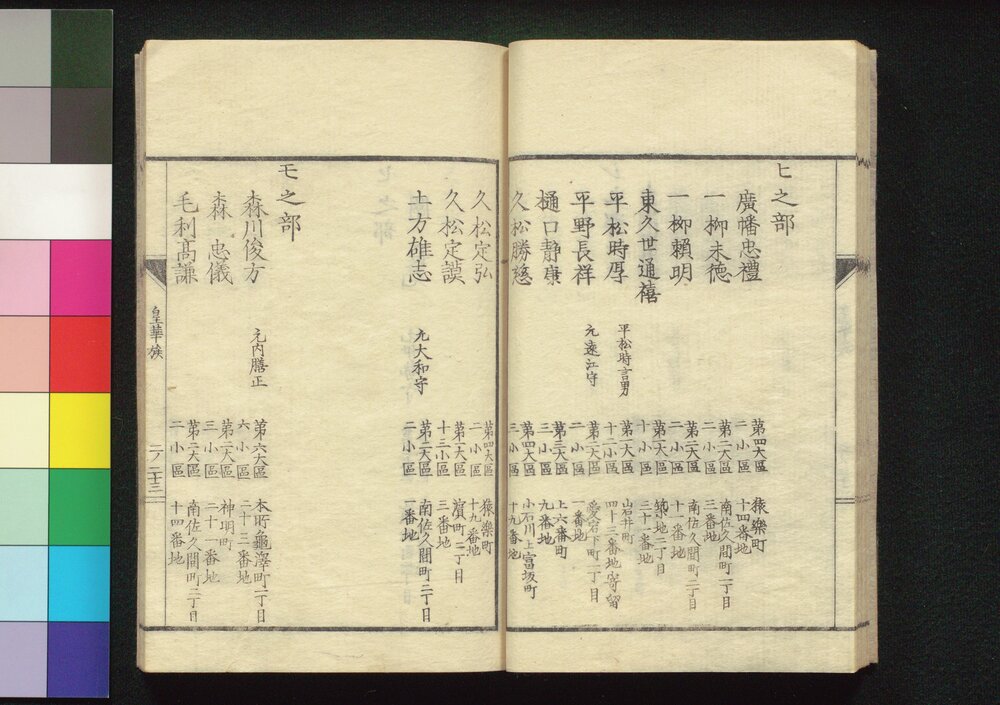 ヒ之部
廣幡忠禮
第四大區
二小區
猿樂町
十四番地
一柳末徳
第二大區
二小區
南佐久間町二丁目
三番地
一柳頼明
第二大區
二小區
南佐久間町二丁目
十一番地
東久世通禧
第二大區
十小區
築地二丁目
三十番地
平松時厚
平松時言男
第二大區
十二小區
山井町
四十三番地寄留
平野長祥
元遠江守
第二大區
二小區
愛宕下町一丁目
一番地
樋口静康
第三大區
三小區
上六番町
九番地
久松勝慈
第四大區
三小區
小石川上富坂町
十九番地
久松定弘
第四大區
二小區
猿樂町
十九番地
久松定謨
第一大區
十三小區
濱町二丁目
三番地
土方雄志
元大和守
第二大區
二小區
南佐久間町二丁目
一番地
モ之部
森川俊方
元内膳正
第六大區
六小區
本所龜澤町一丁目
二十三番地
森忠儀
第二大區
三小區
神明町
二十一番地
毛利髙謙
第二大區
二小區
南佐久間町二丁目
十四番地
皇華族
二ノ二十三